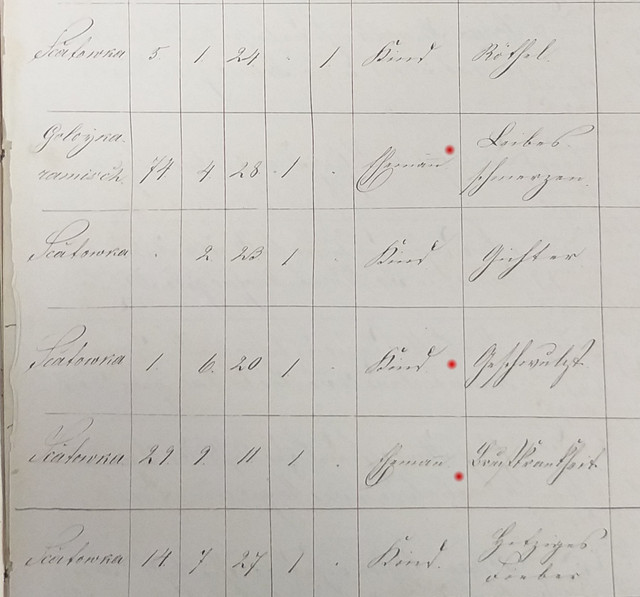 Sciatowka 5. 1 24. . 1 Kind Röthel.
Goloyka-
ramisch. 74 4 28 . 1 . Ehemann Leibes
schmerzen.
Sciatowka . 2. 23 1 . Kind Gichter
Sciatowka 1. 6. 20 1 . Kind Geschwulst.
Sciatowka 29 9. 11 1 . Ehemann Brustkrankheit.
Sciatowka 14 7 27. 1 . Kind. Hitziges
Fieber